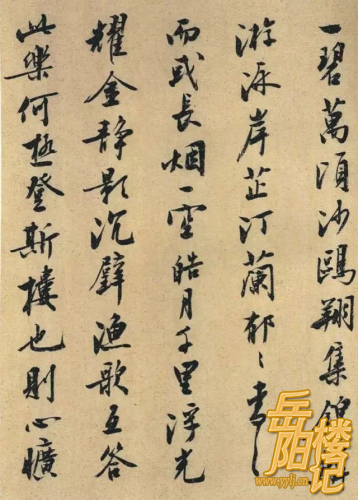 一碧萬頃沙鷗翔集錦
游泳岸芷汀蘭郁〻青〻
而或長烟一空皓月千里浮光
耀金静影沉璧漁歌互答
此樂何極登斯樓也則心曠
岳阳楼记
www.yylj.cn